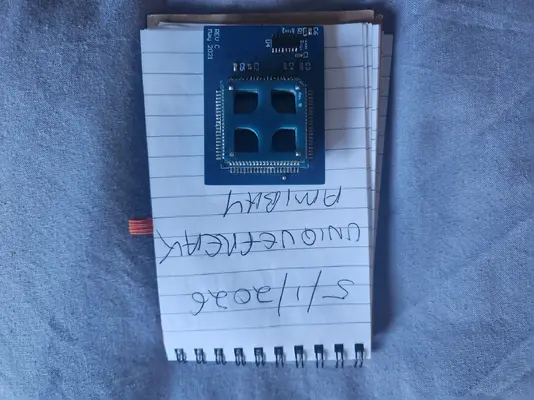 5/1/2026
UNIQUEFREAK
AMIBAY
REV C
May 2021